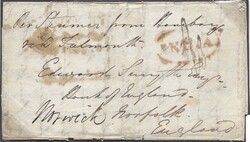 Per Steamer from Bombay
via Falmouth
INDIA
Edward
Bank of England
Norwich Norfolk
England